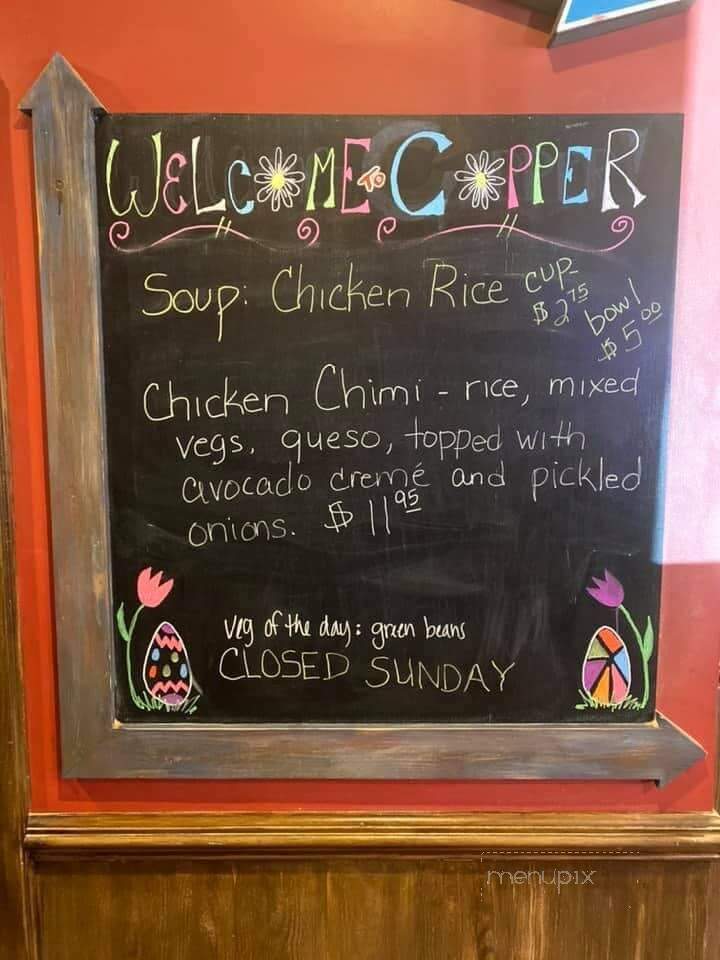 WELCOME TO COPPER
Soup: Chicken Rice cup $2.75 bowl $5.00
Chicken Chimi - rice, mixed
vegs, queso, topped with
avocado cremé and pickled
onions. $11.95
veg of the day: green beans
CLOSED SUNDAY
menupix